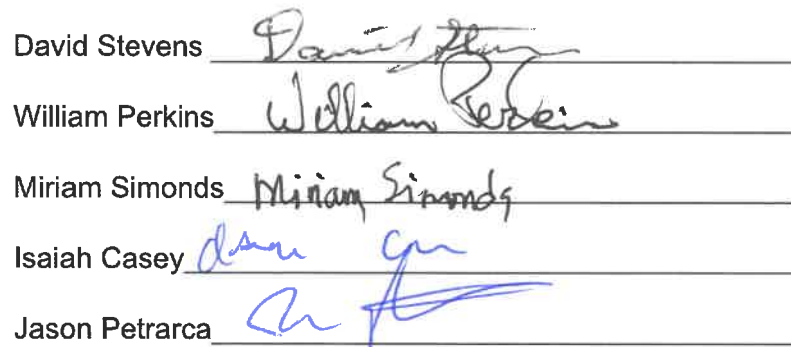 David Stevens David Stevens
William Perkins William Perkins
Miriam Simonds Miriam Simonds
Isaiah Casey
Jason Petrarca